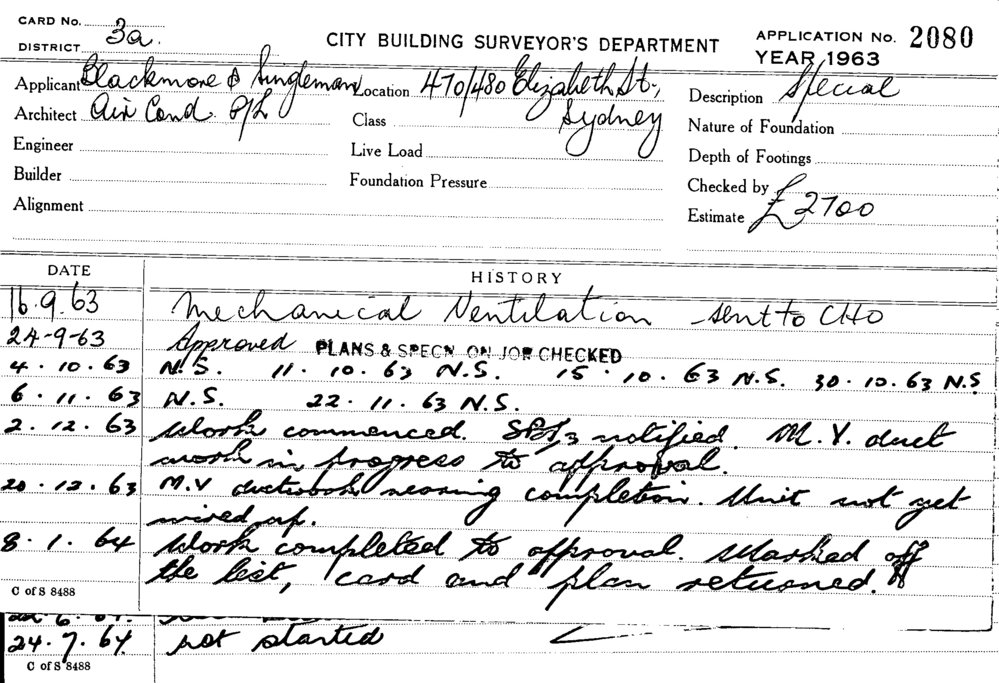 CARD No.
DISTRICT 3a.
CITY BUILDING SURVEYOR'S DEPARTMENT
APPLICATION No. 2080
YEAR 1963
Applicant Blackmore & Singleman
Location 470/480 Elizabeth St.,
Sydney
Description Special
Architect Air Cond. P/L
Class
Nature of Foundation
Engineer
Live Load
Depth of Footings
Builder
Foundation Pressure
Checked by
Alignment
Estimate £2700
DATE HISTORY
16.9.63 Mechanical Ventilation - sent to CHO
24-9-63 Approved PLANS & SPECN ON JOB CHECKED
4.10.63 N.S. 11.10.63 N.S. 15.10.63 N.S. 30.10.63 N.S
6.11.63 N.S. 22.11.63 N.S.
2.12.63 Work commenced. notified. M.V. duct
work in progress to approval.
20.12.63 M.V ductwork nearing completion. Unit not yet
wired up.
8.1.64 Work completed to approval. Marked off
the list, card and plan returned.
C of S 8488
24.7.64 not started
C of S 8488